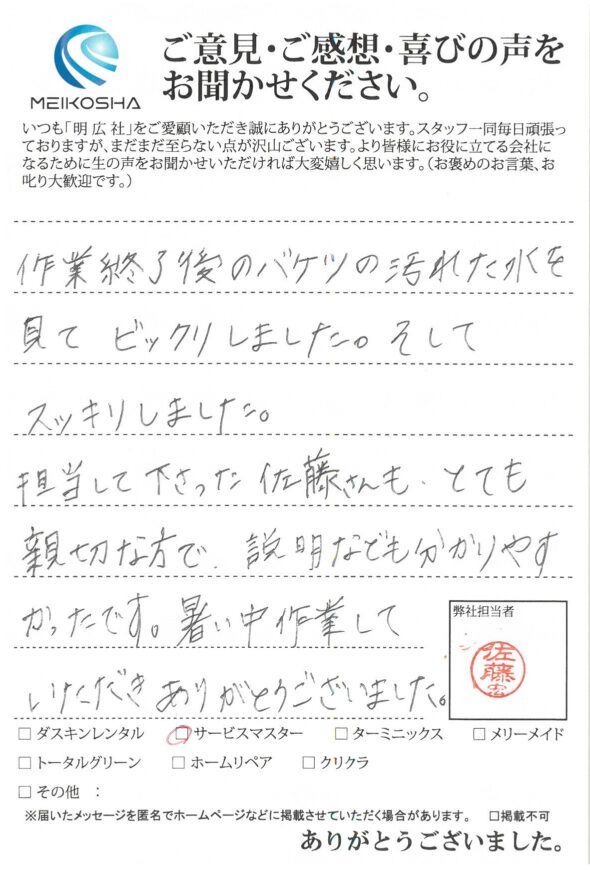 MEIKOSHA
ご意見・ご感想・喜びの声を
お聞かせください。
いつも「明広社」をご愛顧いただき誠にありがとうございます。スタッフ一同毎日頑張っ
ておりますが、まだまだ至らない点が沢山ございます。より皆様にお役に立てる会社に
なるために生の声をお聞かせいただければ大変嬉しく思います。（お褒めのお言葉、お
叱り大歓迎です。）
作業終了後のバケツの汚れた水を
見て ビックリしました。そして
スッキリしました。
担当して下さった佐藤さんも、とても
親切な方で、説明なども分かりやす
かったです。暑い中作業して
いただきありがとうございました。
弊社担当者
佐藤
□ ダスキンレンタル □ サービスマスター □ ターミニックス □ メリーメイド
□ トータルグリーン □ ホームリペア □ クリクラ
□ その他 ：
※届いたメッセージを匿名でホームページなどに掲載させていただく場合があります。 □掲載不可
ありがとうございました。